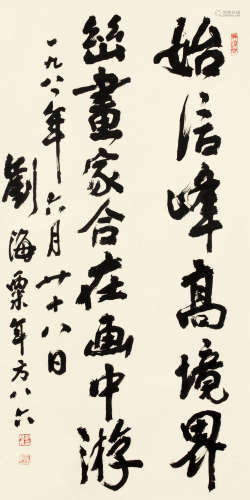 始信峰高境界
幽畫家合在画中游
一九八二年六月廿八日
劉海粟年方八六